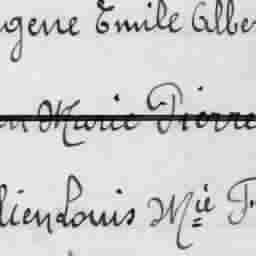 gene Emile Albe
Marie Pierre
lien Louis Mie